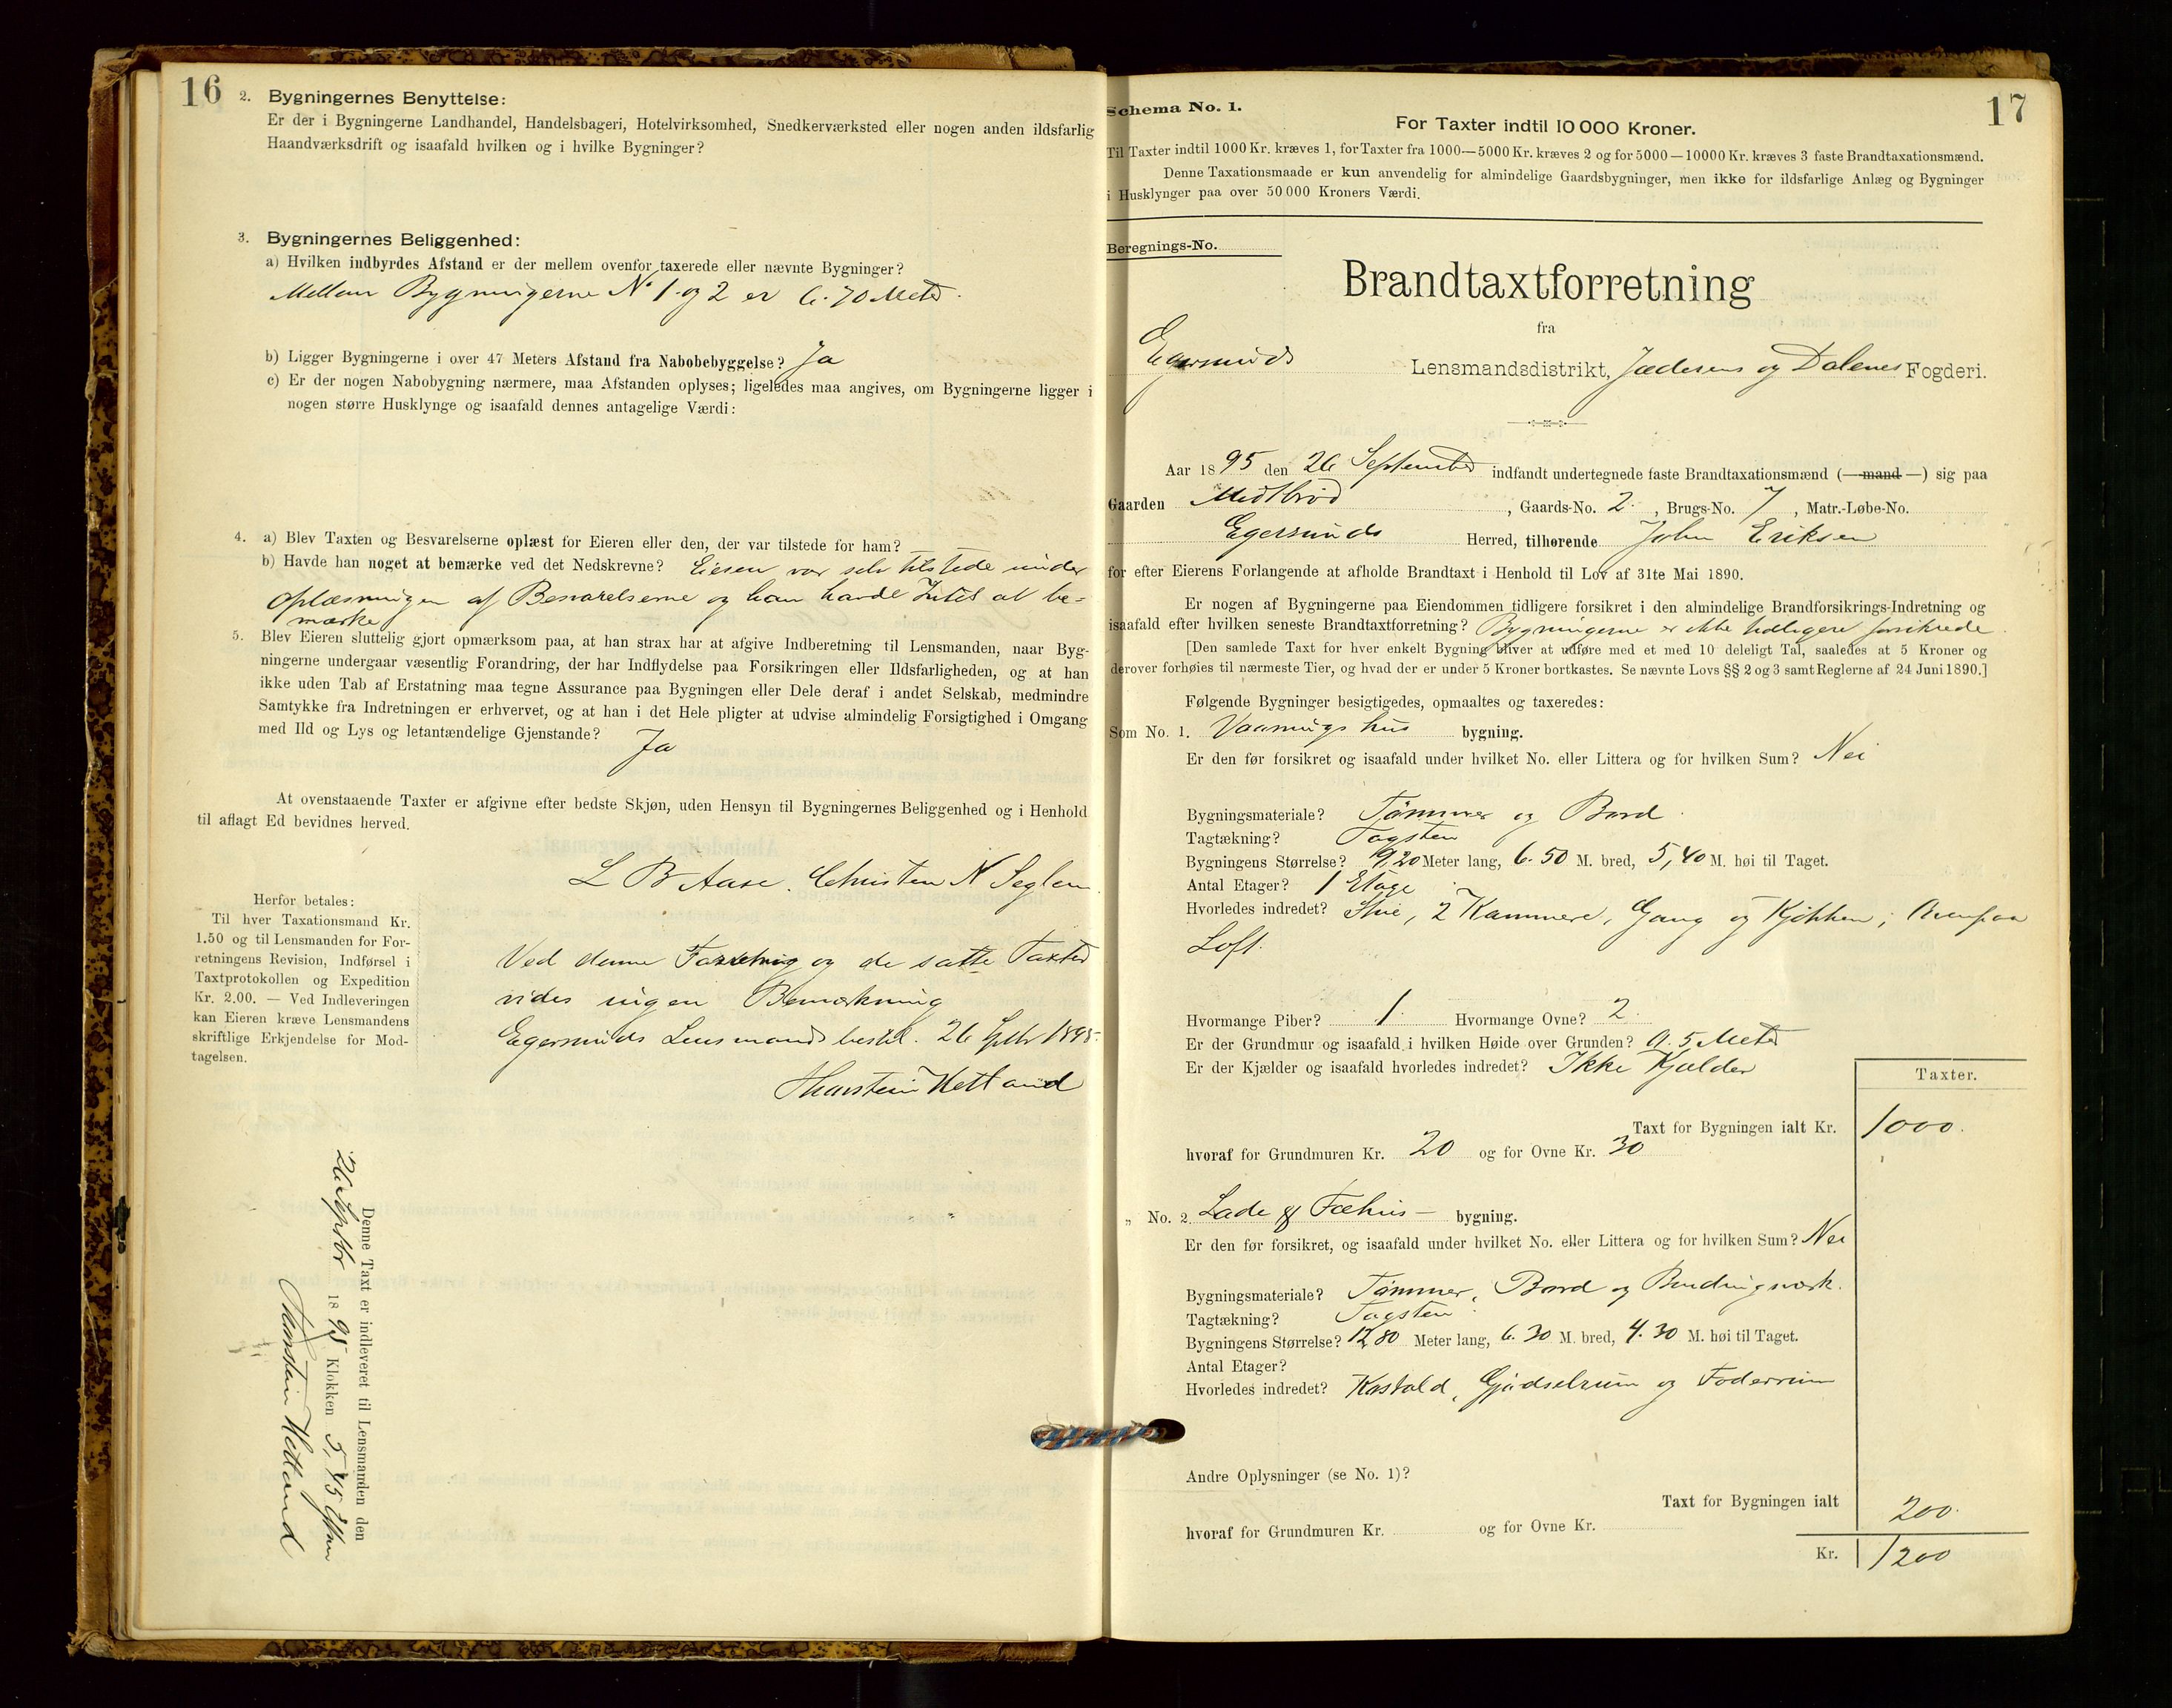 16
2. Bygningernes Benyttelse:
Er der i Bygningerne Landhandel, Handelsbageri, Hotelvirksomhed, Snedkerværksted eller nogen anden ildsfarlig
Haandværksdrift og isaafald hvilken og i hvilke Bygninger?
3. Bygningernes Beliggenhed:
a) Hvilken indbyrdes Afstand er der mellem ovenfor taxerede eller nævnte Bygninger?
Mellem Bygningerne No 1 og 2 er 6.70 Meter.
b) Ligger Bygningerne i over 47 Meters Afstand fra Nabobebyggelse? Ja
c) Er der nogen Nabobygning nærmere, maa Afstanden oplyses; ligeledes maa angives, om Bygningerne ligger i
nogen større Husklynge og isaafald dennes antagelige Værdi:
4. a) Blev Taxten og Besvarelserne oplæst for Eieren eller den, der var tilstede for ham?
b) Havde han noget at bemærke ved det Nedskrevne? Eieren var selv tilstede under
Oplæsningen af Besvarelserne og han havde Intet at be=
mærke
5. Blev Eieren sluttelig gjort opmærksom paa, at han strax har at afgive Indberetning til Lensmanden, naar Byg-
ningerne undergaar væsentlig Forandring, der har Indflydelse paa Forsikringen eller Ildsfarligheden, og at han
ikke uden Tab af Erstatning maa tegne Assurance paa Bygningen eller Dele deraf i andet Selskab, medmindre
Samtykke fra Indretningen er erhvervet, og at han i det Hele pligter at udvise almindelig Forsigtighed i Omgang
med Ild og Lys og letantændelige Gjenstande? Ja
At ovenstaaende Taxter er afgivne efter bedste Skjøn, uden Hensyn til Bygningernes Beliggenhed og i Henhold
til aflagt Ed bevidnes herved.
L B Aase. Christen N Seglem.
Herfor betales:
Til hver Taxationsmand Kr.
1.50 og til Lensmanden for For-
retningens Revision, Indførsel i
Taxtprotokollen og Expedition
Kr. 2.00. — Ved Indleveringen
kan Eieren kræve Lensmandens
skriftlige Erkjendelse for Mod-
tagelsen.
Ved denne Forretning og de satte Taxter
vides ingen Bemærkning
Egersunds Lensmandsbestil. 26 Septbr 1895.
Thorstein Hetland
Denne Taxt er indleveret til Lensmanden den
26 Septbr 1895 Klokken 5,45 Efterm
Thorstein Hetland
17
Schema No. 1.
For Taxter indtil 10 000 Kroner.
Til Taxter indtil 1000 Kr. kræves 1, for Taxter fra 1000—5000 Kr. kræves 2 og for 5000—10000 Kr. kræves 3 faste Brandtaxationsmænd.
Denne Taxationsmaade er kun anvendelig for almindelige Gaardsbygninger, men ikke for ildsfarlige Anlæg og Bygninger
i Husklynger paa over 50 000 Kroners Værdi.
Beregnings-No.
Brandtaxtforretning
fra
Egersunds Lensmandsdistrikt, Jæderens og Dalenes Fogderi.
Aar 1895 den 26 September indfandt undertegnede faste Brandtaxationsmænd (—mand—) sig paa
Gaarden Midtbrød, Gaards-No. 2., Brugs-No. 7, Matr.-Løbe-No.
Egersunds Herred, tilhørende John Eriksen
for efter Eierens Forlangende at afholde Brandtaxt i Henhold til Lov af 31te Mai 1890.
Er nogen af Bygningerne paa Eiendommen tidligere forsikret i den almindelige Brandforsikrings-Indretning og
isaafald efter hvilken seneste Brandtaxtforretning? Bygningerne er ikke tidligere forsikrede.
[Den samlede Taxt for hver enkelt Bygning bliver at udføre med et med 10 deleligt Tal, saaledes at 5 Kroner og
derover forhøies til nærmeste Tier, og hvad der er under 5 Kroner bortkastes. Se nævnte Lovs §§ 2 og 3 samt Reglerne af 24 Juni 1890.]
Følgende Bygninger besigtigedes, opmaaltes og taxeredes:
Som No. 1. Vaaningshus bygning.
Er den før forsikret og isaafald under hvilket No. eller Littera og for hvilken Sum? Nei
Bygningsmateriale? Tømmer og Bord.
Tagtækning? Tagsten
Bygningens Størrelse? 9,20 Meter lang, 6.50 M. bred, 5,40 M. høi til Taget.
Antal Etager? 1 Etage
Hvorledes indredet? Stue, 2 Kammere, Gang og Kjøkken; Ovenpaa
Loft.
Hvormange Piber? 1. Hvormange Ovne? 2.
Er der Grundmur og isaafald i hvilken Høide over Grunden? 0.5 Meter
Er der Kjælder og isaafald hvorledes indredet? Ikke Kjælder
Taxter.
Taxt for Bygningen ialt Kr. 1000.
hvoraf for Grundmuren Kr. 20 og for Ovne Kr. 30
„ No. 2. Lade & Fæhus- bygning.
Er den før forsikret, og isaafald under hvilket No. eller Littera og for hvilken Sum? Nei
Bygningsmateriale? Tømmer, Bord og Bindingsværk.
Tagtækning? Tagsten
Bygningens Størrelse? 12.80 Meter lang, 6.30 M. bred, 4.30 M. høi til Taget.
Antal Etager?
Hvorledes indredet? Kostald, Gjødselrum og Foderrum
Andre Oplysninger (se No. 1)?
Taxt for Bygningen ialt 200.
hvoraf for Grundmuren Kr. og for Ovne Kr.
Kr. 1200